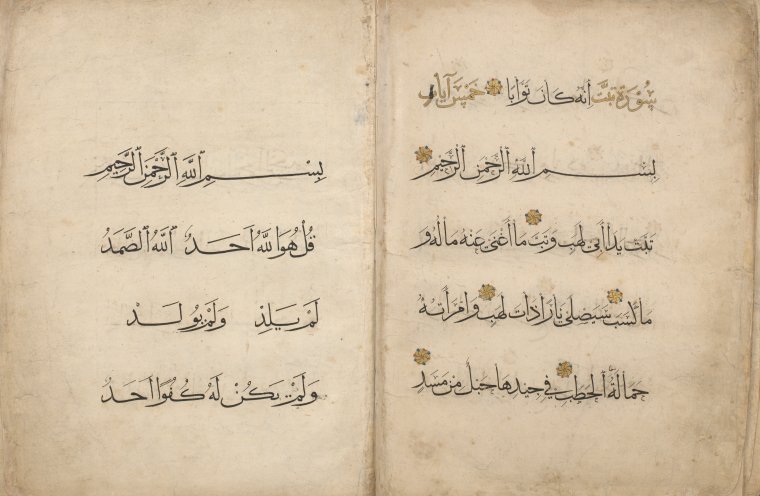 سُورَة تبَّت اِنّهُ كانَ تَوَّابا خَمْسُ آيَات
بِسْمِ اللَّهِ الرَّحْمٰنِ الرَّحِيْمِ
تَبَّتْ يَدا أَبِي لَهَبٍ وَتَبَّ مَا أَغْنَى عَنْهُ مَالُهُ وَ
مَا كَسَبَ سَيَصْلَى نَارًا ذَاتَ لَهَبٍ وَامْرَأَتُهُ
حَمَّالَةُ الْحَطَبِ فِي جِيْدِهَا حَبْلٌ مِنْ مَسَدٍ
بِسْمِ اللَّهِ الرَّحْمٰنِ الرَّحِيْمِ
قُلْ هُوَ اللَّهُ أَحَدٌ اللَّهُ الصَّمَدُ
لَمْ يَلِدْ وَلَمْ يُولَدْ
وَلَمْ يَكُنْ لَهُ كُفُوًا أَحَدٌ